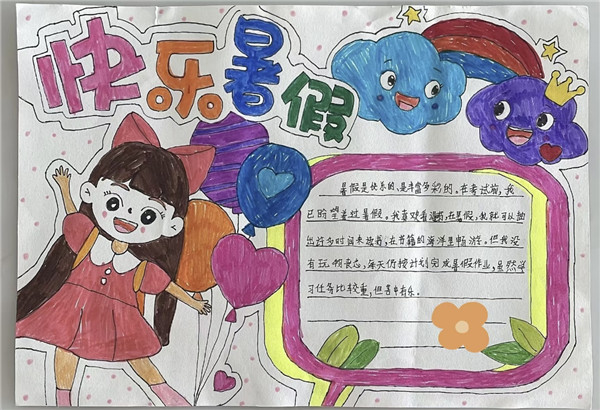 快乐暑假
暑假是快乐的,是丰富多彩的。在考试前,我
已盼望着过暑假。我喜欢看书,在暑假,我就可以抽
出许多时间来读书,在书籍的海洋里畅游。但我没
有玩物丧志,每天仍按计划完成暑假作业,虽然学
习任务比较重,但苦中有乐。